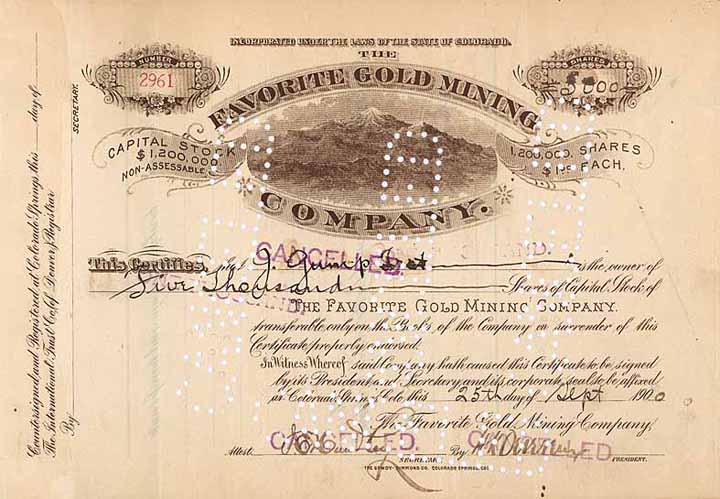 INCORPORATED UNDER THE LAWS OF THE STATE OF COLORADO.
THE
NUMBER
2961
SHARES
5000
FAVORITE GOLD MINING
COMPANY.
CAPITAL STOCK
$1,200,000.
NON-ASSESSABLE.
1,200,000 SHARES
$1.00 EACH.
CANCELLED.
This Certifies, that J. is the owner of
Five Thousand Shares of Capital Stock of
THE FAVORITE GOLD MINING COMPANY.
transferable only on the Books of the Company on surrender of this
Certificate properly endorsed.
In Witness Whereof said Company hath caused this Certificate to be signed
by its President and Secretary and its corporate seal to be affixed
at Colorado Springs, Colo this 25th day of Sept 1900
The Favorite Gold Mining Company,
CANCELLED. CANCELLED.
Attest: By
SECRETARY. PRESIDENT.
THE GOWDY-SIMMONS CO. COLORADO SPRINGS, COL.
Countersigned and Registered at Colorado Springs this day of
The International Trust Co. of Denver, Registrar
By SECRETARY.